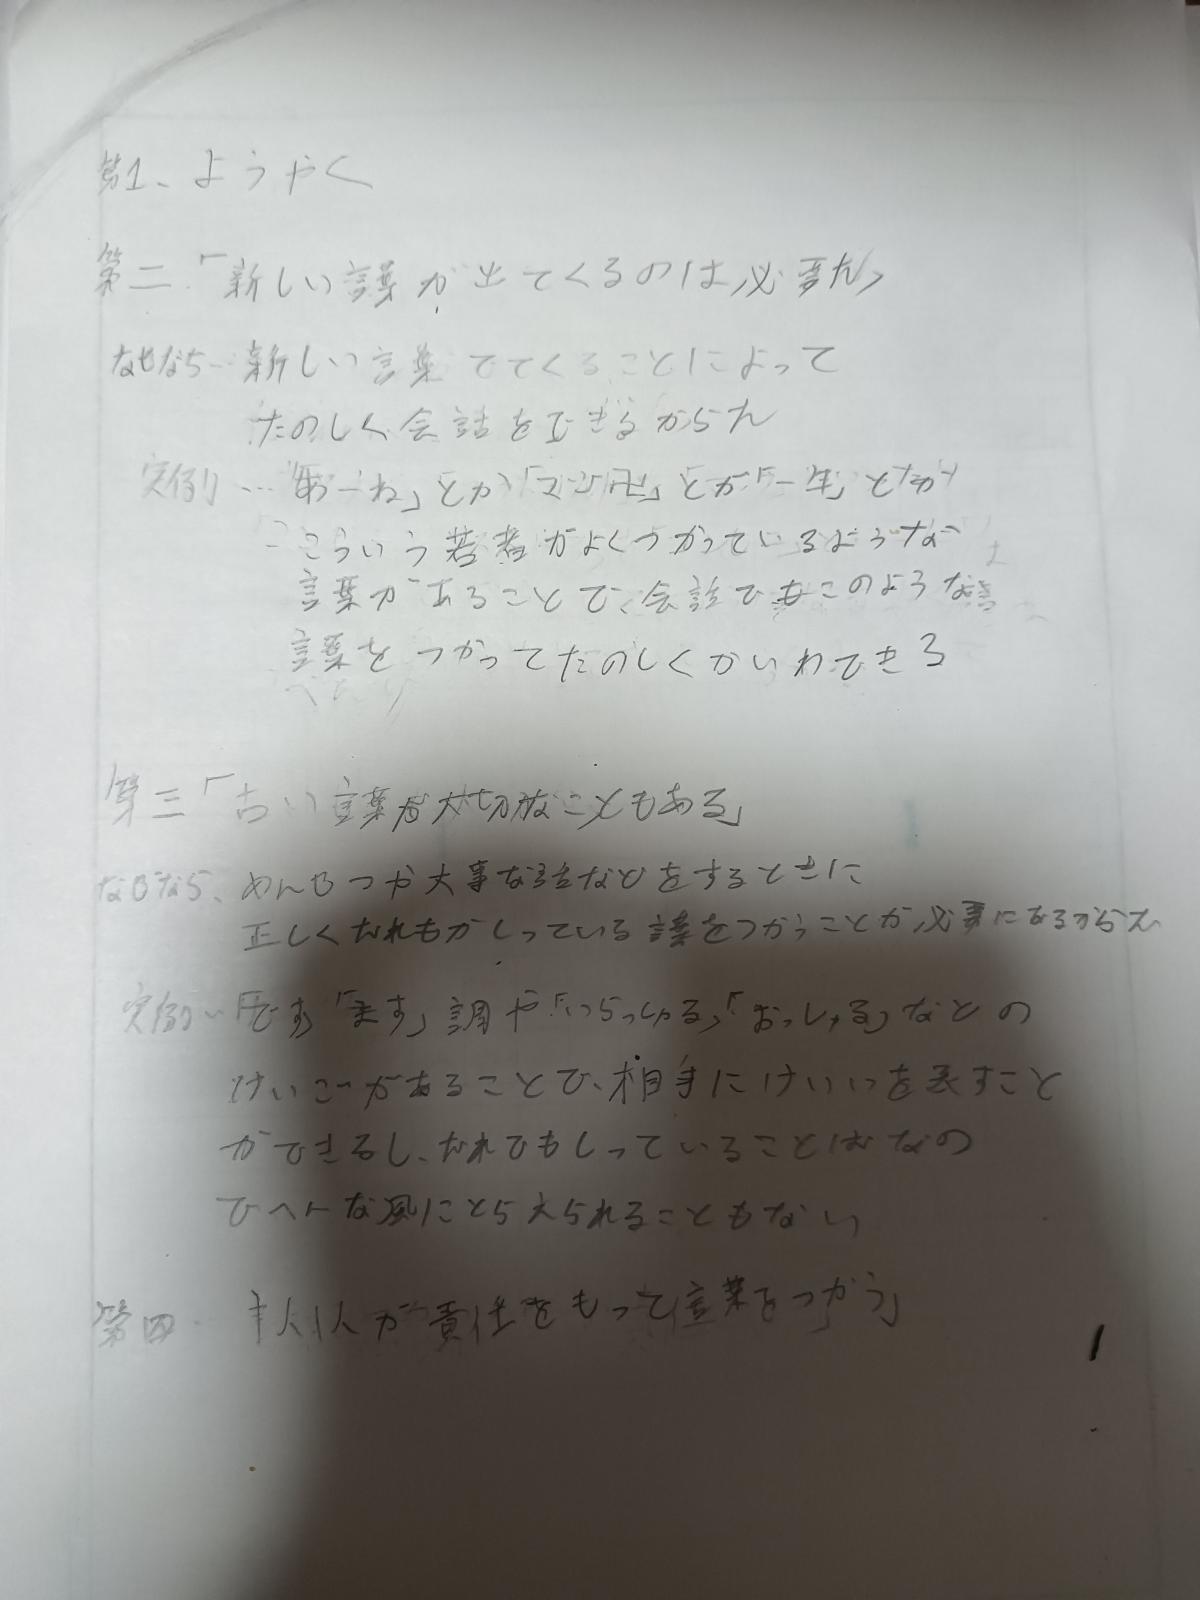 第1、ようやく
第二、「新しい言葉が出てくるのは必要だ」
なぜなら…新しい言葉でてくることによって
たのしく会話をできるからだ
実例…「あーね」とか「マジ卍」とか「一生」とか
こういう若者がよくつかっているような
言葉があることで、会話でもこのような
言葉をつかってたのしくかいわできる
第三「古い言葉が大切なこともある」
なぜなら、めんせつや大事な話などをするときに
正しくだれもがしっている言葉をつかうことが必要になるからだ
実例…「です」「ます」調や「いらっしゃる」「おっしゃる」などの
けいごがあることで、相手にけいいを表すこと
ができるし、だれでもしっていることばなの
でへんな風にとらえられることもない
第四…「人が責任をもって言葉をつかう」